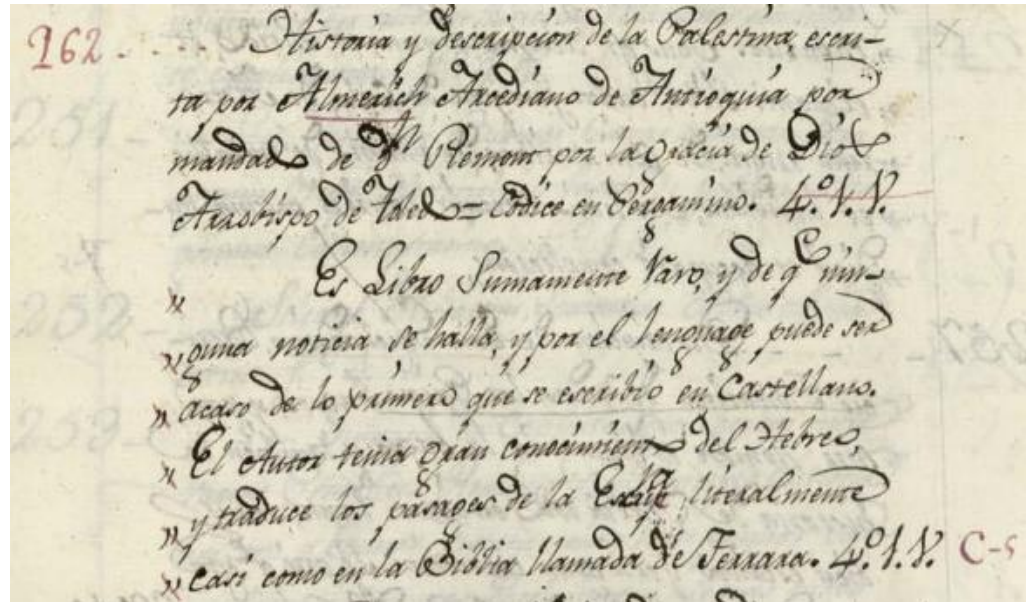 262. Historia y descripcion de la Palestina, escri-
ta por Almerich Arcediano de Antioquia por
mandado de Dn Remont por la Gracia de Dios
Arzobispo de Toledo = Codice en Pergamino. 4.º 1. V.
" Es Libro Sumamente raro, y de qe nin-
" guna noticia se halla, y por el lenguage puede ser
" acaso de lo primero que se escribio en Castellano.
" El Autor tenia gran conocimiento del Hebreo,
" y traduce los pasages de la literalmente
" casi como en la Biblia llamada de Ferrara. 4.º 1. V. C-5